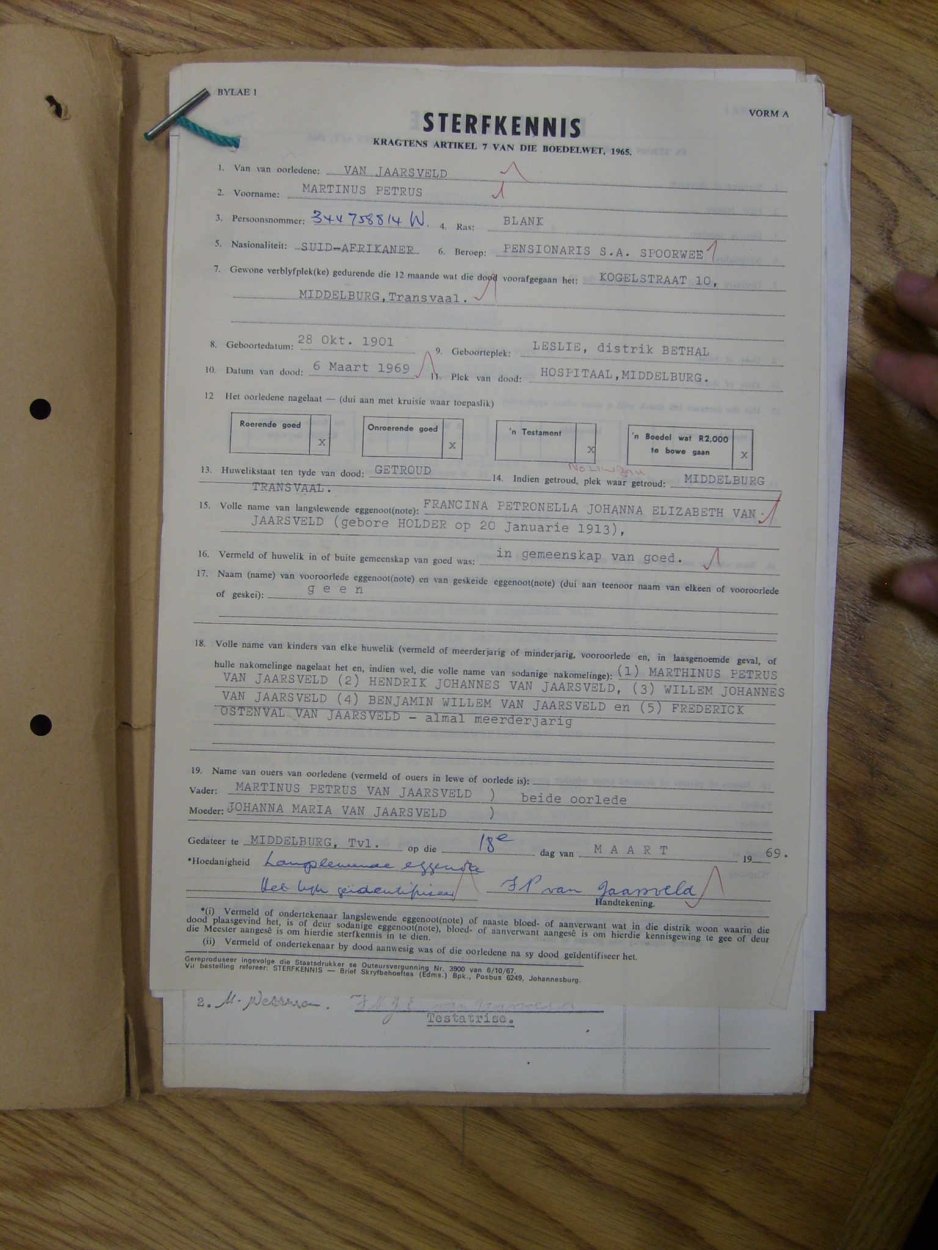 BYLAE 1
VORM A
STERFKENNIS
KRAGTENS ARTIKEL 7 VAN DIE BOEDELWET, 1965.
1. Van van oorledene: VAN JAARSVELD
2. Voorname: MARTINUS PETRUS
3. Persoonsnommer: 344758814 W. 4. Ras: BLANK
5. Nasionaliteit: SUID-AFRIKANER 6. Beroep: PENSIONARIS S.A. SPOORWEE
7. Gewone verblyfplek(ke) gedurende die 12 maande wat die dood voorafgegaan het: KOGELSTRAAT 10,
MIDDELBURG,Transvaal.
8. Geboortedatum: 28 Okt. 1901 9. Geboorteplek: LESLIE, distrik BETHAL
10. Datum van dood: 6 Maart 1969 11. Plek van dood: HOSPITAAL,MIDDELBURG.
12 Het oorledene nagelaat — (dui aan met kruisie waar toepaslik)
Roerende goed X Onroerende goed X 'n Testament X 'n Boedel wat R2,000 te bowe gaan X
13. Huwelikstaat ten tyde van dood: GETROUD 14. Indien getroud, plek waar getroud: MIDDELBURG
TRANSVAAL.
15. Volle name van langslewende eggenoot(note): FRANCINA PETRONELLA JOHANNA ELIZABETH VAN
JAARSVELD (gebore HOLDER op 20 Januarie 1913),
16. Vermeld of huwelik in of buite gemeenskap van goed was: in gemeenskap van goed.
17. Naam (name) van vooroorlede eggenoot(note) en van geskeide eggenoot(note) (dui aan teenoor naam van elkeen of vooroorlede
of geskei): g e e n
18. Volle name van kinders van elke huwelik (vermeld of meerderjarig of minderjarig, vooroorlede en, in laasgenoemde geval, of
hulle nakomelinge nagelaat het en, indien wel, die volle name van sodanige nakomelinge): (1) MARTHINUS PETRUS
VAN JAARSVELD (2) HENDRIK JOHANNES VAN JAARSVELD, (3) WILLEM JOHANNES
VAN JAARSVELD (4) BENJAMIN WILLEM VAN JAARSVELD en (5) FREDERICK
OSTENVAL VAN JAARSVELD - almal meerderjarig
19. Name van ouers van oorledene (vermeld of ouers in lewe of oorlede is):
Vader: MARTINUS PETRUS VAN JAARSVELD ) beide oorlede
Moeder: JOHANNA MARIA VAN JAARSVELD )
Gedateer te MIDDELBURG, Tvl. op die 18e dag van M A A R T 19 69.
*Hoedanigheid Langslewende eggenote
Het lyk geidentifiseer J P van Jaarsveld
Handtekening.
*(i) Vermeld of ondertekenaar langslewende eggenoot(note) of naaste bloed- of aanverwant wat in die distrik woon waarin die
dood plaasgevind het, is of deur sodanige eggenoot(note), bloed- of aanverwant aangesê is om hierdie kennisgewing te gee of deur
die Meester aangesê is om hierdie sterfkennis in te dien.
(ii) Vermeld of ondertekenaar by dood aanwesig was of die oorledene na sy dood geïdentifiseer het.
Gereproduseer ingevolge die Staatsdrukker se Outeursvergunning Nr. 3900 van 6/10/67.
Vir bestelling refereer: STERFKENNIS — Brief Skryfbehoeftes (Edms.) Bpk., Posbus 6249, Johannesburg.
2.
Testatrise.